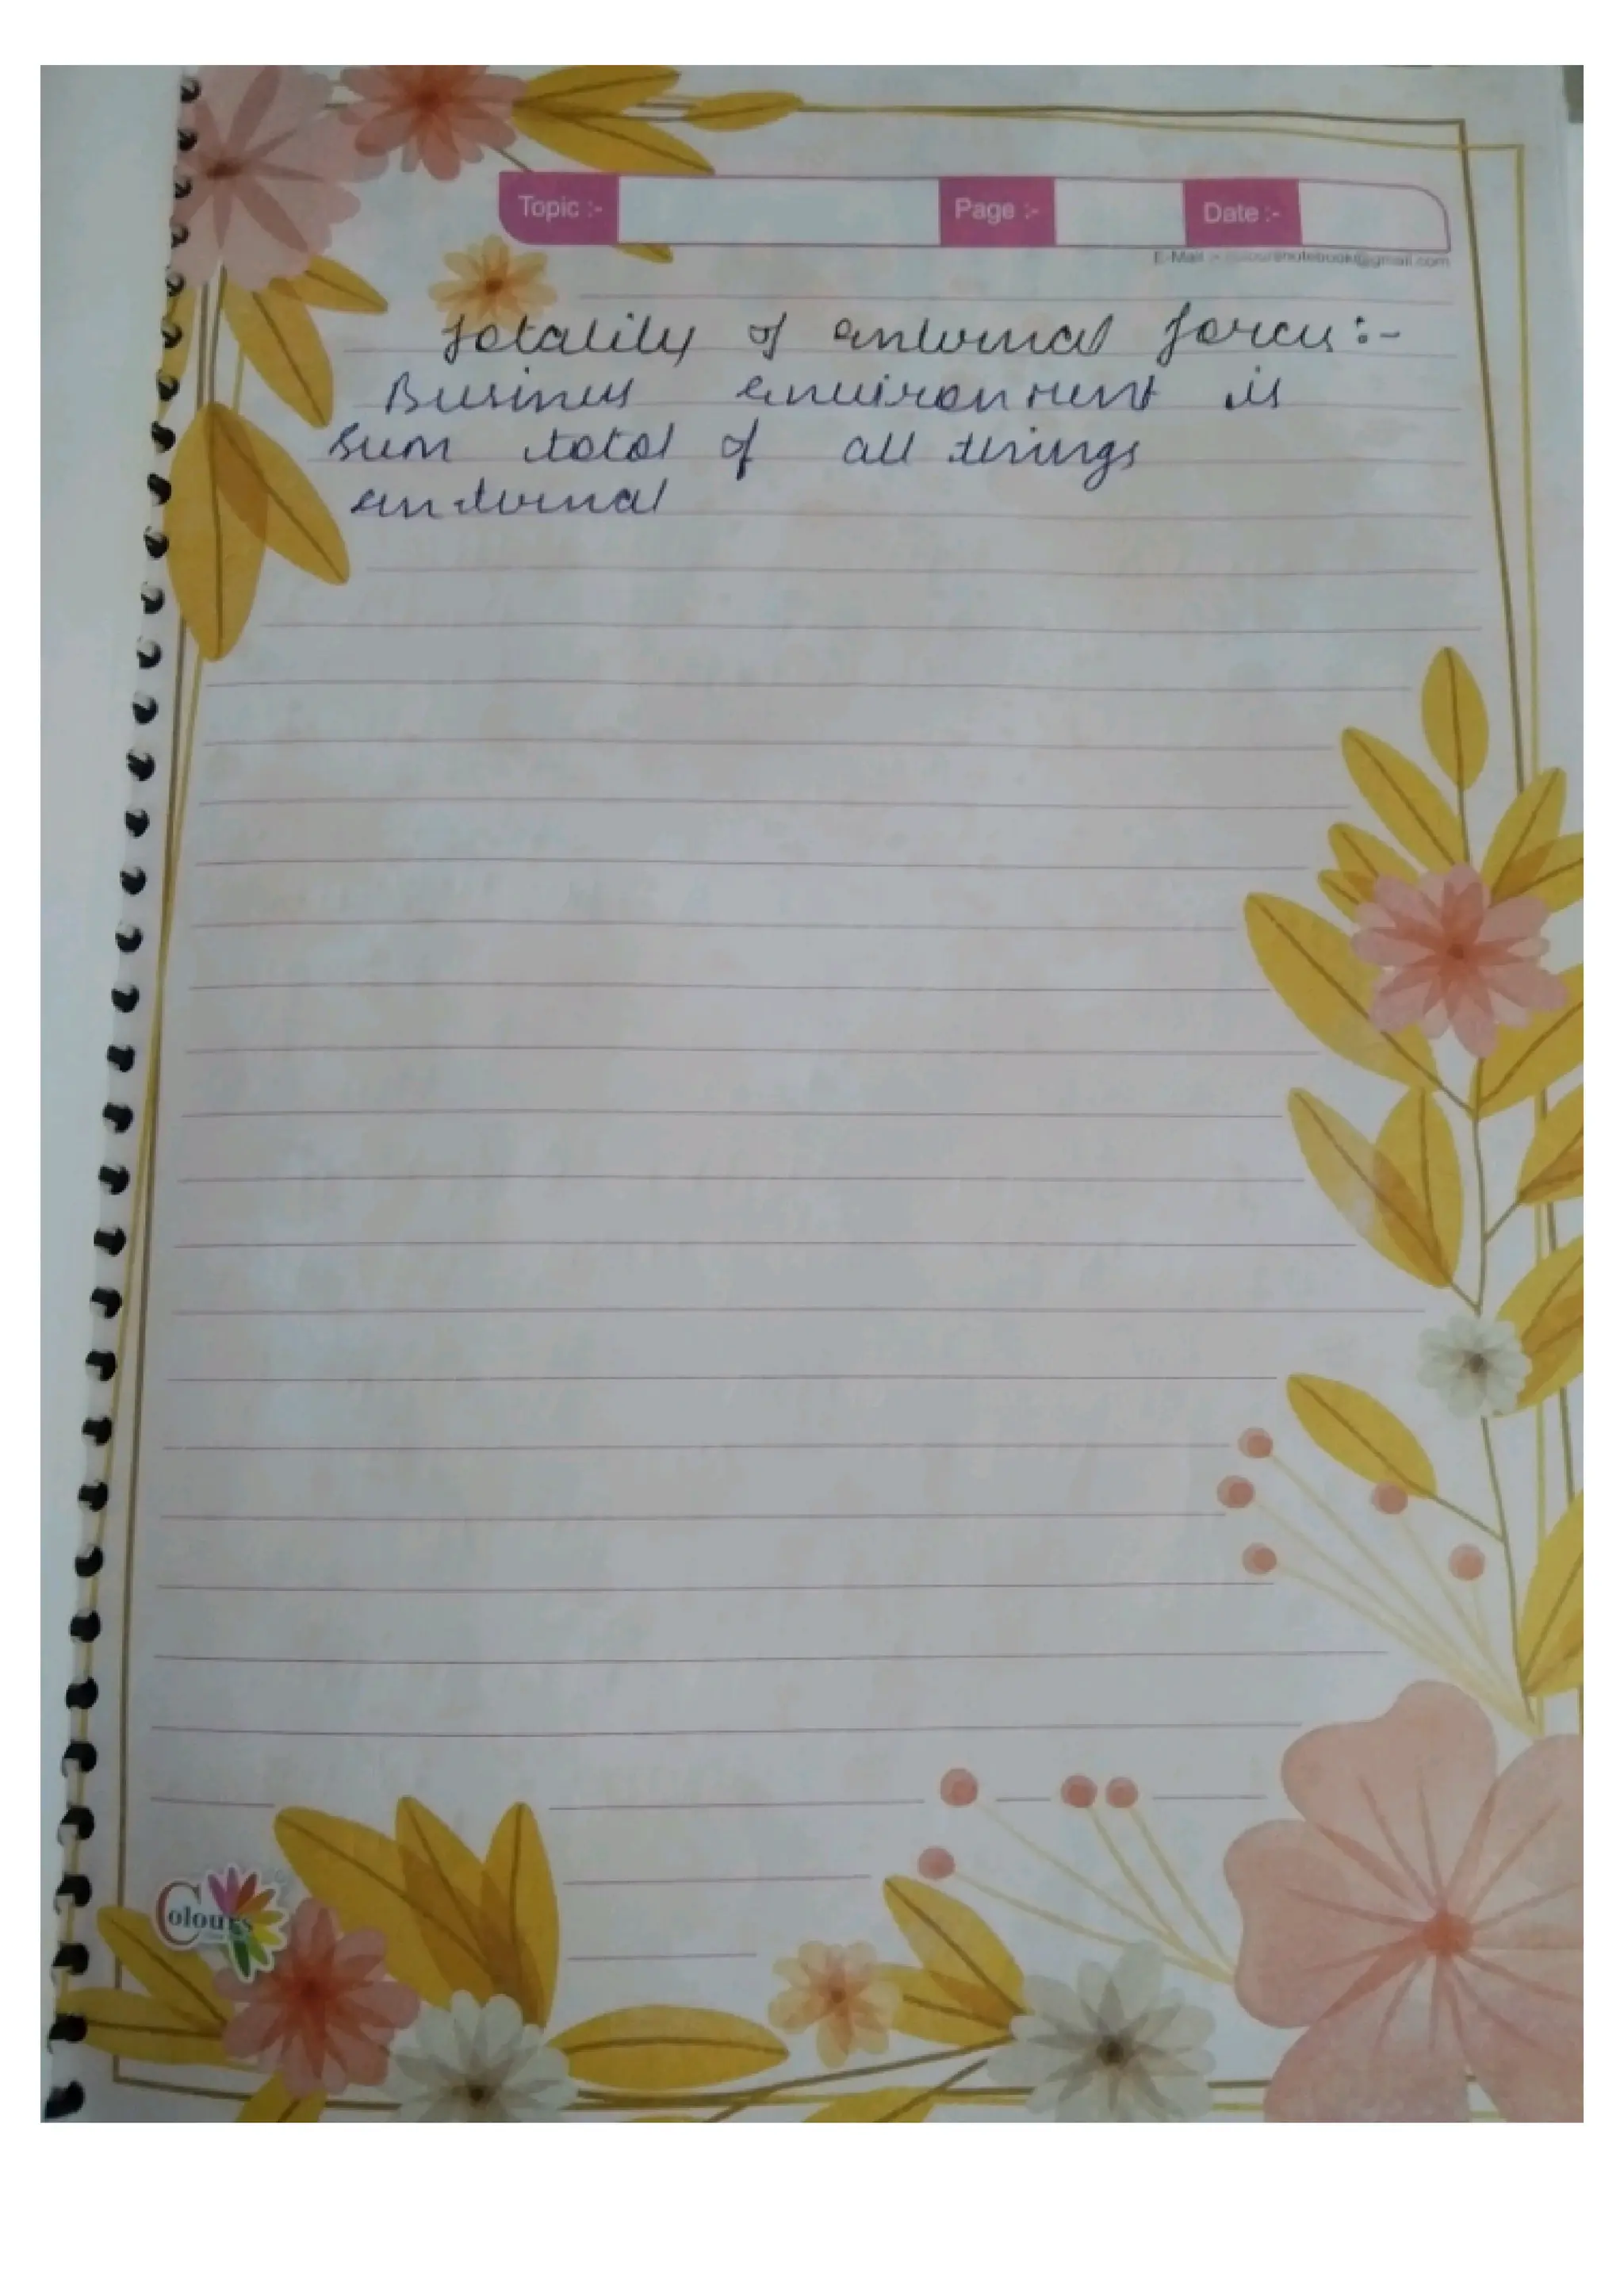 Topic :- Page :- Date :-
E-Mail :- coloursnotebook@gmail.com
Totality of external forces :-
Business environment is
sum total of all things
external
Colours